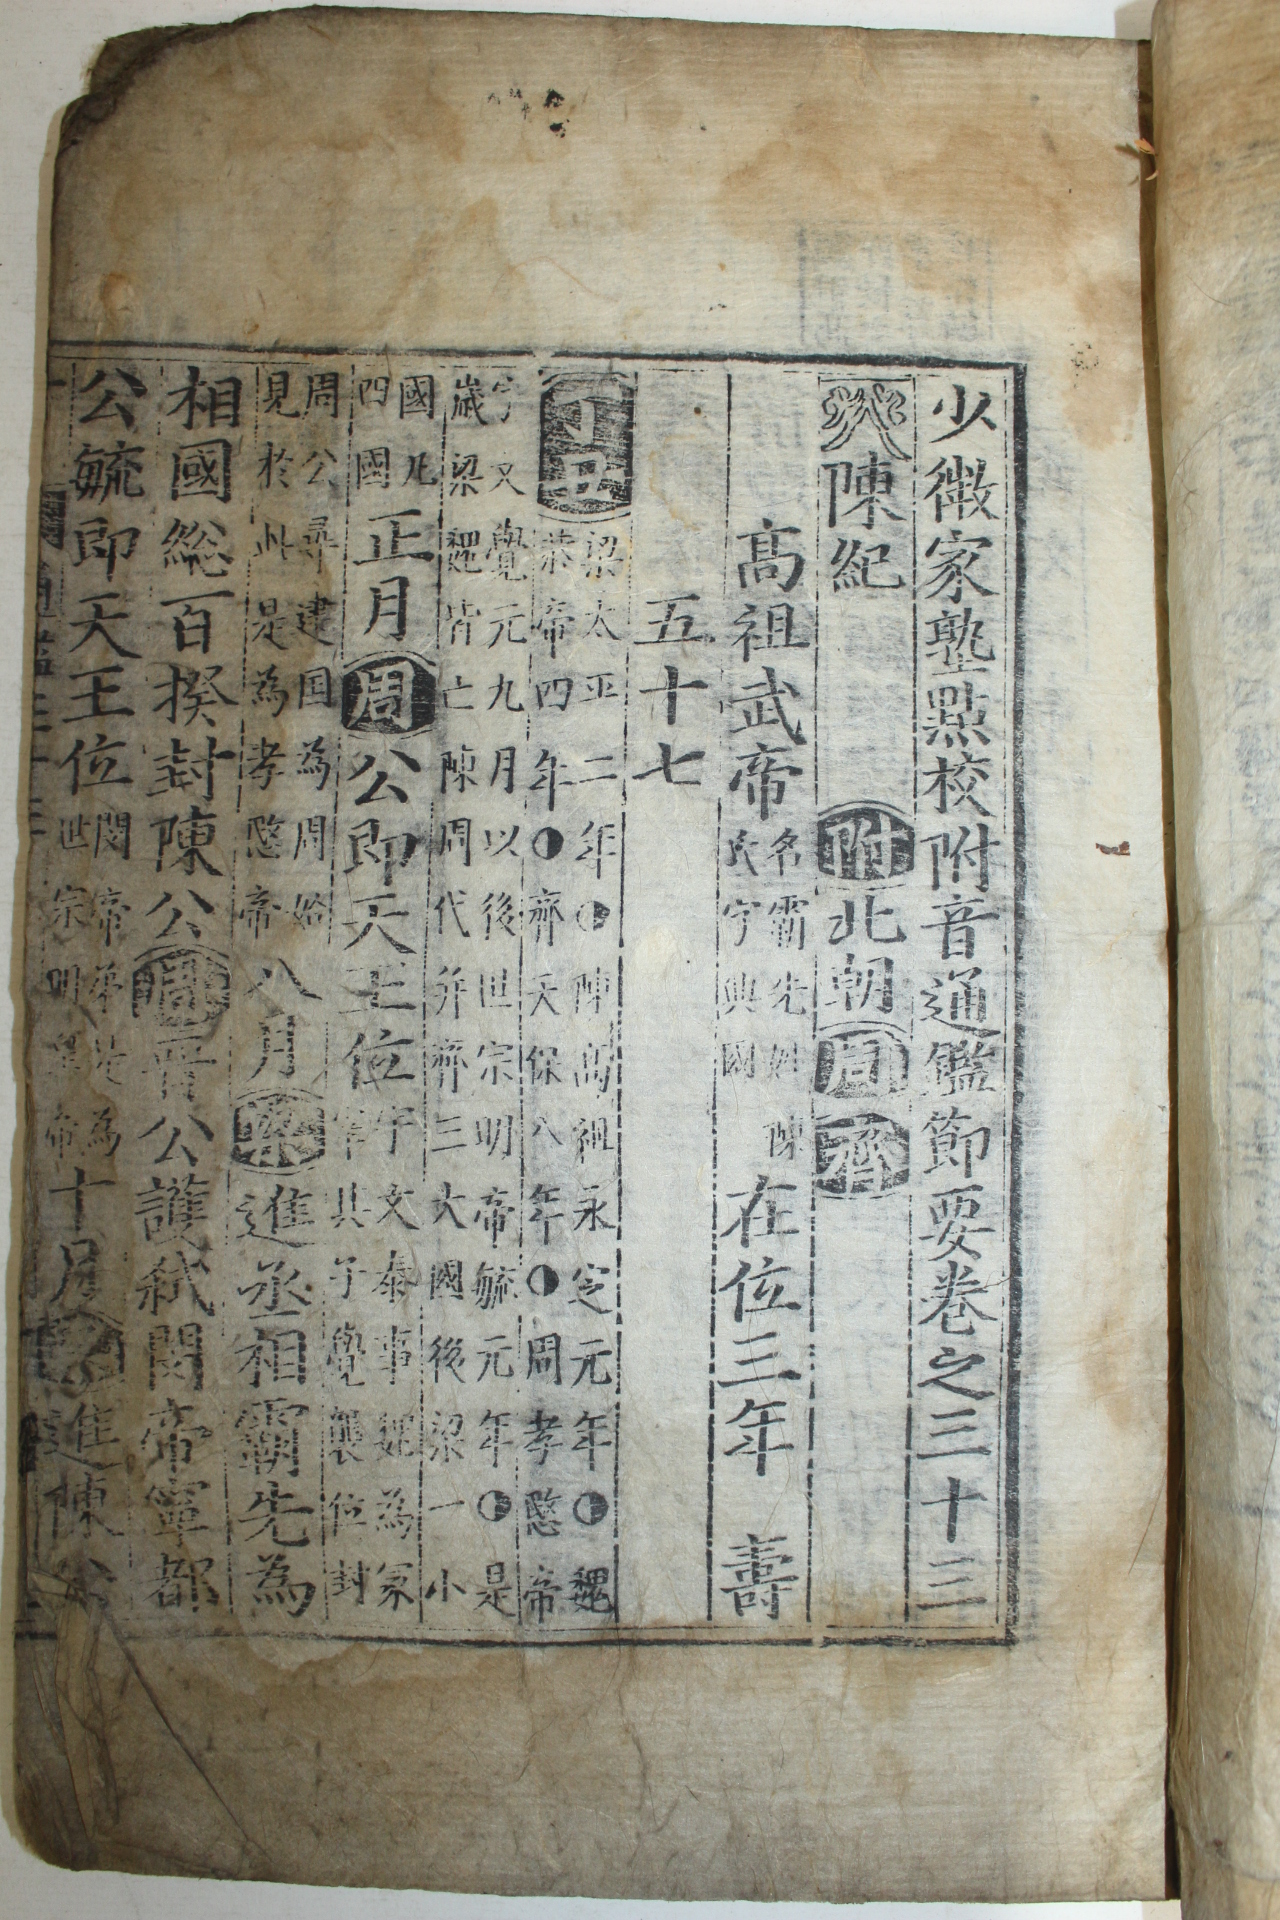 少微家塾點校附音通鑑節要卷之三十三
陳紀 附北朝周齊
高祖武帝 名霸先姓陳氏字興國 在位三年 壽
五十七
丁丑 梁太平二年○陳高祖永定元年○魏
恭帝四年○齊天保八年○周孝愍帝
宇文覺元九月以後世宗明帝毓元年○是
歲梁魏皆亡陳周代并齊三大國後梁一小
國凡
四國
正月周公即天王位 宇文泰事魏為冢
宰其子覺襲位封
周公尋建国為周始
見於此是為孝愍帝
八月梁進丞相霸先為
相國総百揆封陳公周晋公護弑閔帝寧都
公毓即天王位 閔帝弟是為
世宗明皇帝
十月梁進陳公